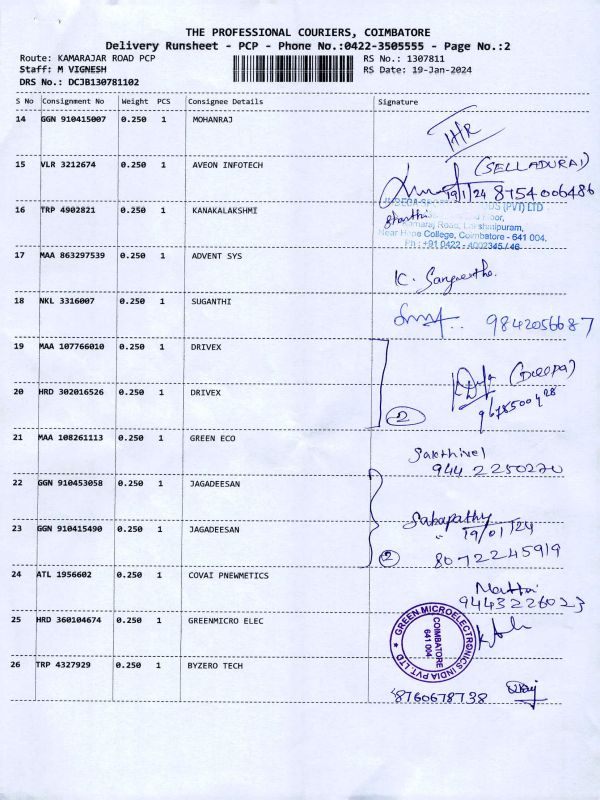 THE PROFESSIONAL COURIERS, COIMBATORE
Delivery Runsheet - PCP - Phone No.:0422-3505555 - Page No.:2
Route: KAMARAJAR ROAD PCP
RS No.: 1307811
Staff: M VIGNESH
RS Date: 19-Jan-2024
DRS No.: DCJB130781102
S No Consignment No Weight PCS Consignee Details Signature
14 GGN 910415007 0.250 1 MOHANRAJ
15 VLR 3212674 0.250 1 AVEON INFOTECH
(SELLADURAI)
19/1/24 8754006486
16 TRP 4902821 0.250 1 KANAKALAKSHMI
(PVT) LTD
Near Hope College, Coimbatore - 641 004.
Ph : +91 0422 - 4002345 / 46
17 MAA 863297539 0.250 1 ADVENT SYS
K. Sangeetha
18 NKL 3316007 0.250 1 SUGANTHI
9842056687
19 MAA 107766010 0.250 1 DRIVEX
(Deepa)
20 HRD 302016526 0.250 1 DRIVEX
2
21 MAA 108261113 0.250 1 GREEN ECO
Sakthivel
944 2250270
22 GGN 910453058 0.250 1 JAGADEESAN
Sabapathy
19/01/24
23 GGN 910415490 0.250 1 JAGADEESAN
2
8072245919
24 ATL 1956602 0.250 1 COVAI PNEWMETICS
9443226023
25 HRD 360104674 0.250 1 GREENMICRO ELEC
GREEN MICROELECTRONICS INDIA PVT LTD
COIMBATORE
641 004
26 TRP 4327929 0.250 1 BYZERO TECH
8760678738